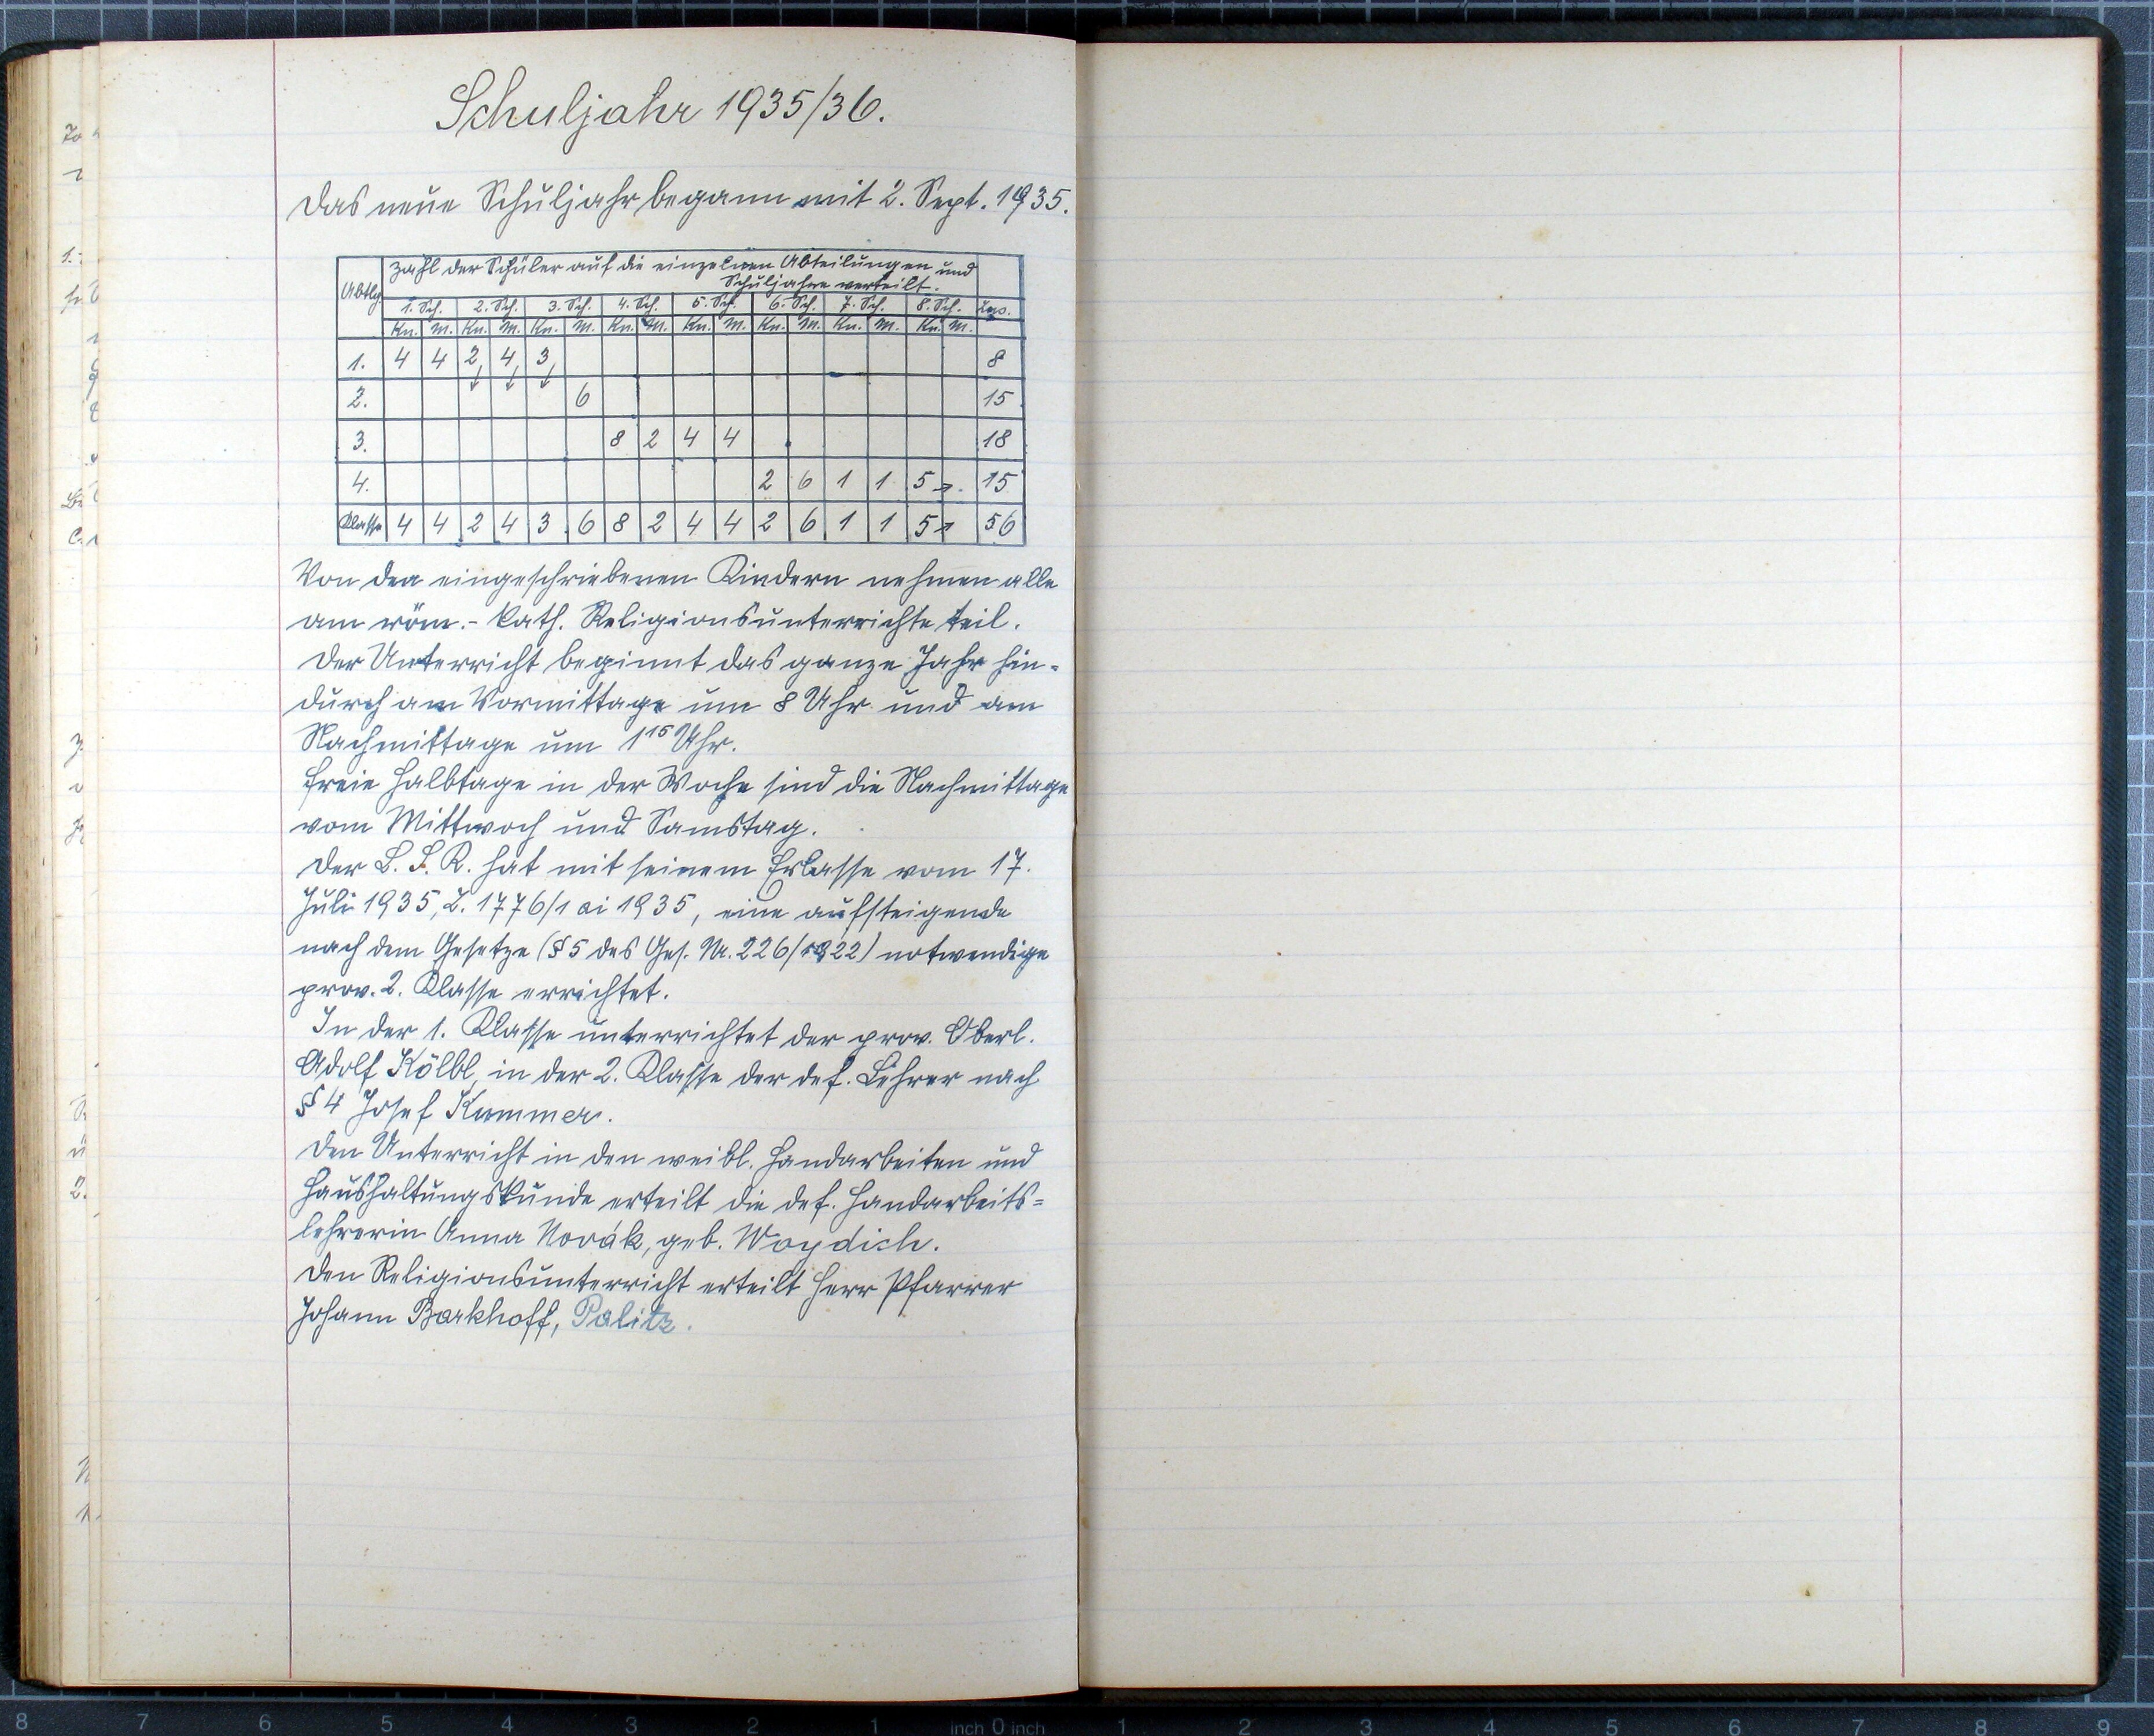 Schuljahr 1935/36.
Das neue Schuljahr begann mit 2. Sept. 1935.
Abtlg. Zahl der Schüler auf die einzelnen Abteilungen und
Schuljahre verteilt.
1. Sch. 2. Sch. 3. Sch. 4. Sch. 5. Sch. 6. Sch. 7. Sch. 8. Sch. Zus.
Kn. M. Kn. M. Kn. M. Kn. M. Kn. M. Kn. M. Kn. M. Kn. M.
1. 4 4 2 4 3 8
2. 6 15
3. 8 2 4 4 18
4. 2 6 1 1 5 - 15
Klasse 4 4 2 4 3 6 8 2 4 4 2 6 1 1 5 - 56
Von den eingeschriebenen Kindern nehmen alle
am röm.-kath. Religionsunterrichte teil.
Der Unterricht beginnt das ganze Jahr hin-
durch am Vormittage um 8 Uhr und am
Nachmittage um 1¹⁵ Uhr.
Freie Halbtage in der Woche sind die Nachmittage
vom Mittwoch und Samstag.
Der L. S. R. hat mit seinem Erlasse vom 17.
Juli 1935, Z. 1776/1 ai 1935, eine aufsteigende
nach dem Gesetze (§ 5 des Ges. Nr. 226/1922) notwendige
prov. 2. Klasse errichtet.
In der 1. Klasse unterrichtet der prov. Oberl.
Adolf Kölbl, in der 2. Klasse der def. Lehrer nach
§ 4 Josef Kummer.
Den Unterricht in den weibl. Handarbeiten und
Haushaltungskunde erteilt die def. Handarbeits-
lehrerin Anna Novák, geb. Woydich.
Den Religionsunterricht erteilt Herr Pfarrer
Johann Barkhoff, Palitz.
8 7 6 5 4 3 2 1 inch 0 inch 1 2 3 4 5 6 7 8 9